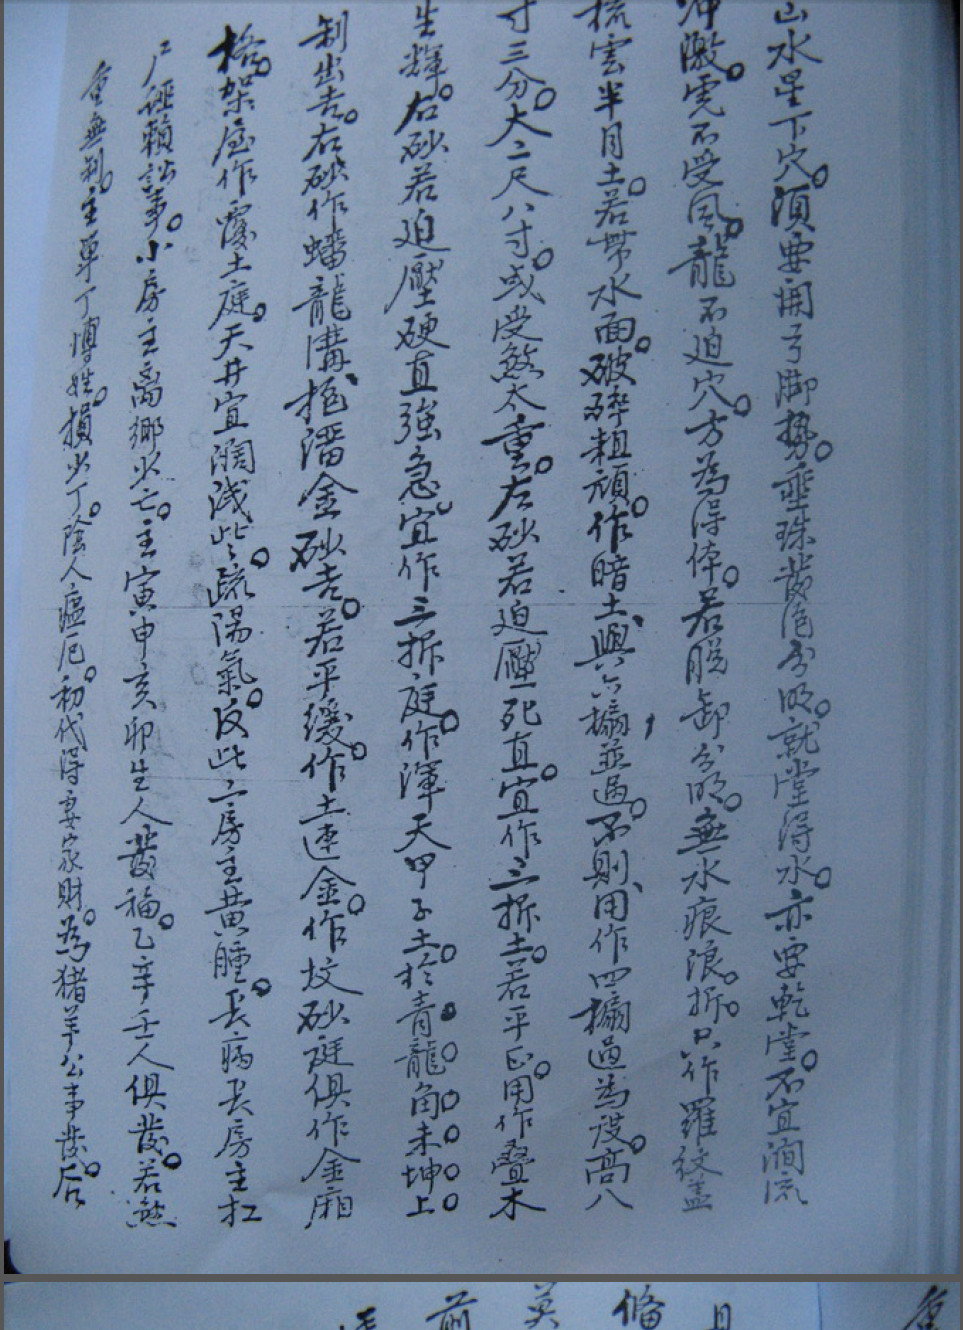 山水星下穴。須要開弓脚勢。垂珠發色分明。就堂得水。亦要乾堂。不宜澗流
冲激。穴不受風。龍不迫穴。方為得体。若脱卸分明。無水痕浪。拆。只作羅紋盖
梳雲半月土。若带水面。破碎粗頑。作暗土、與六搧並過。不則、用作四搧過為誤。高八
寸三分。大二尺八寸。或受煞太重。左砂若迫壓死直。宜作三拆土。若平正。用作叠木
生輝。右砂若迫壓硬直強急。宜作三拆庭。作渾天甲子土。於青龍角未坤上。
制出去。右砂作蟠龍溝。潘金砂去。若平缓。作土連金。作坟砂庭俱作金廂
格。架屋作土庭。天井宜濶浅些。疏陽氣。反此二房主黄腫。長病長房主扛
尸經賴訟事。小房主离鄉少亡。主寅申亥卯生人發福。乙辛壬人俱發。若煞
重無制。主單丁傅姓。損少丁。陰人瘟厄。初代得妻家財。為猪羊公事發。后
前 英 脩 月